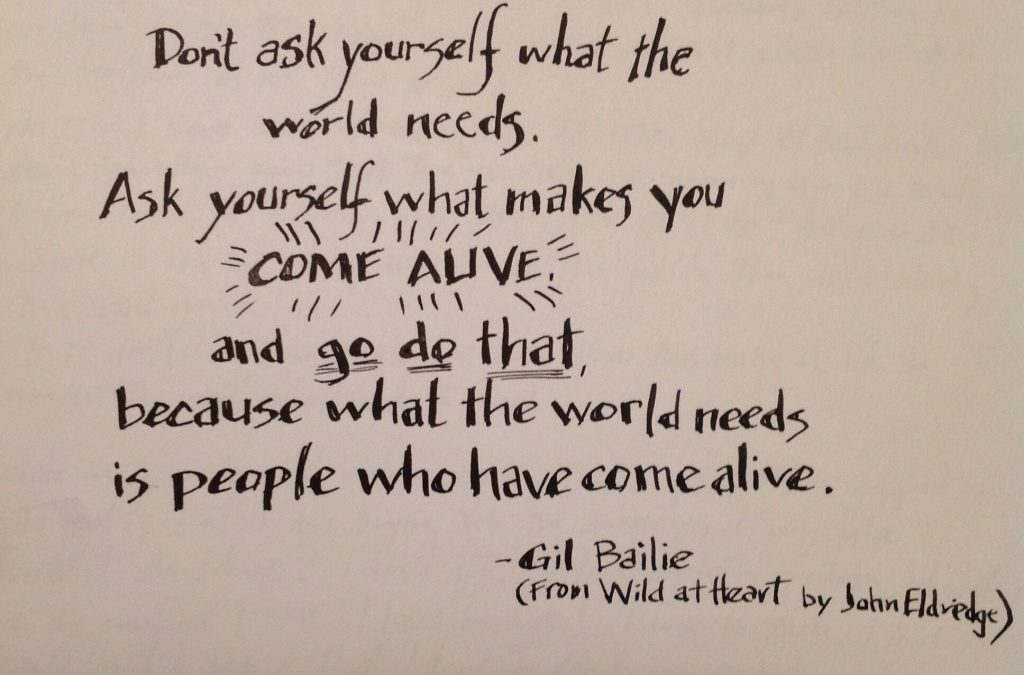 Don't ask yourself what the
world needs.
Ask yourself what makes you
COME ALIVE,
and go do that,
because what the world needs
is people who have come alive.
- Gil Bailie
(From Wild at Heart by John Eldredge)